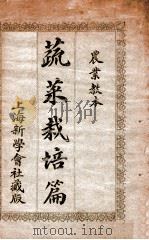 農業教本
蔬菜栽培篇
上海新學會社藏版
www.dushu.com